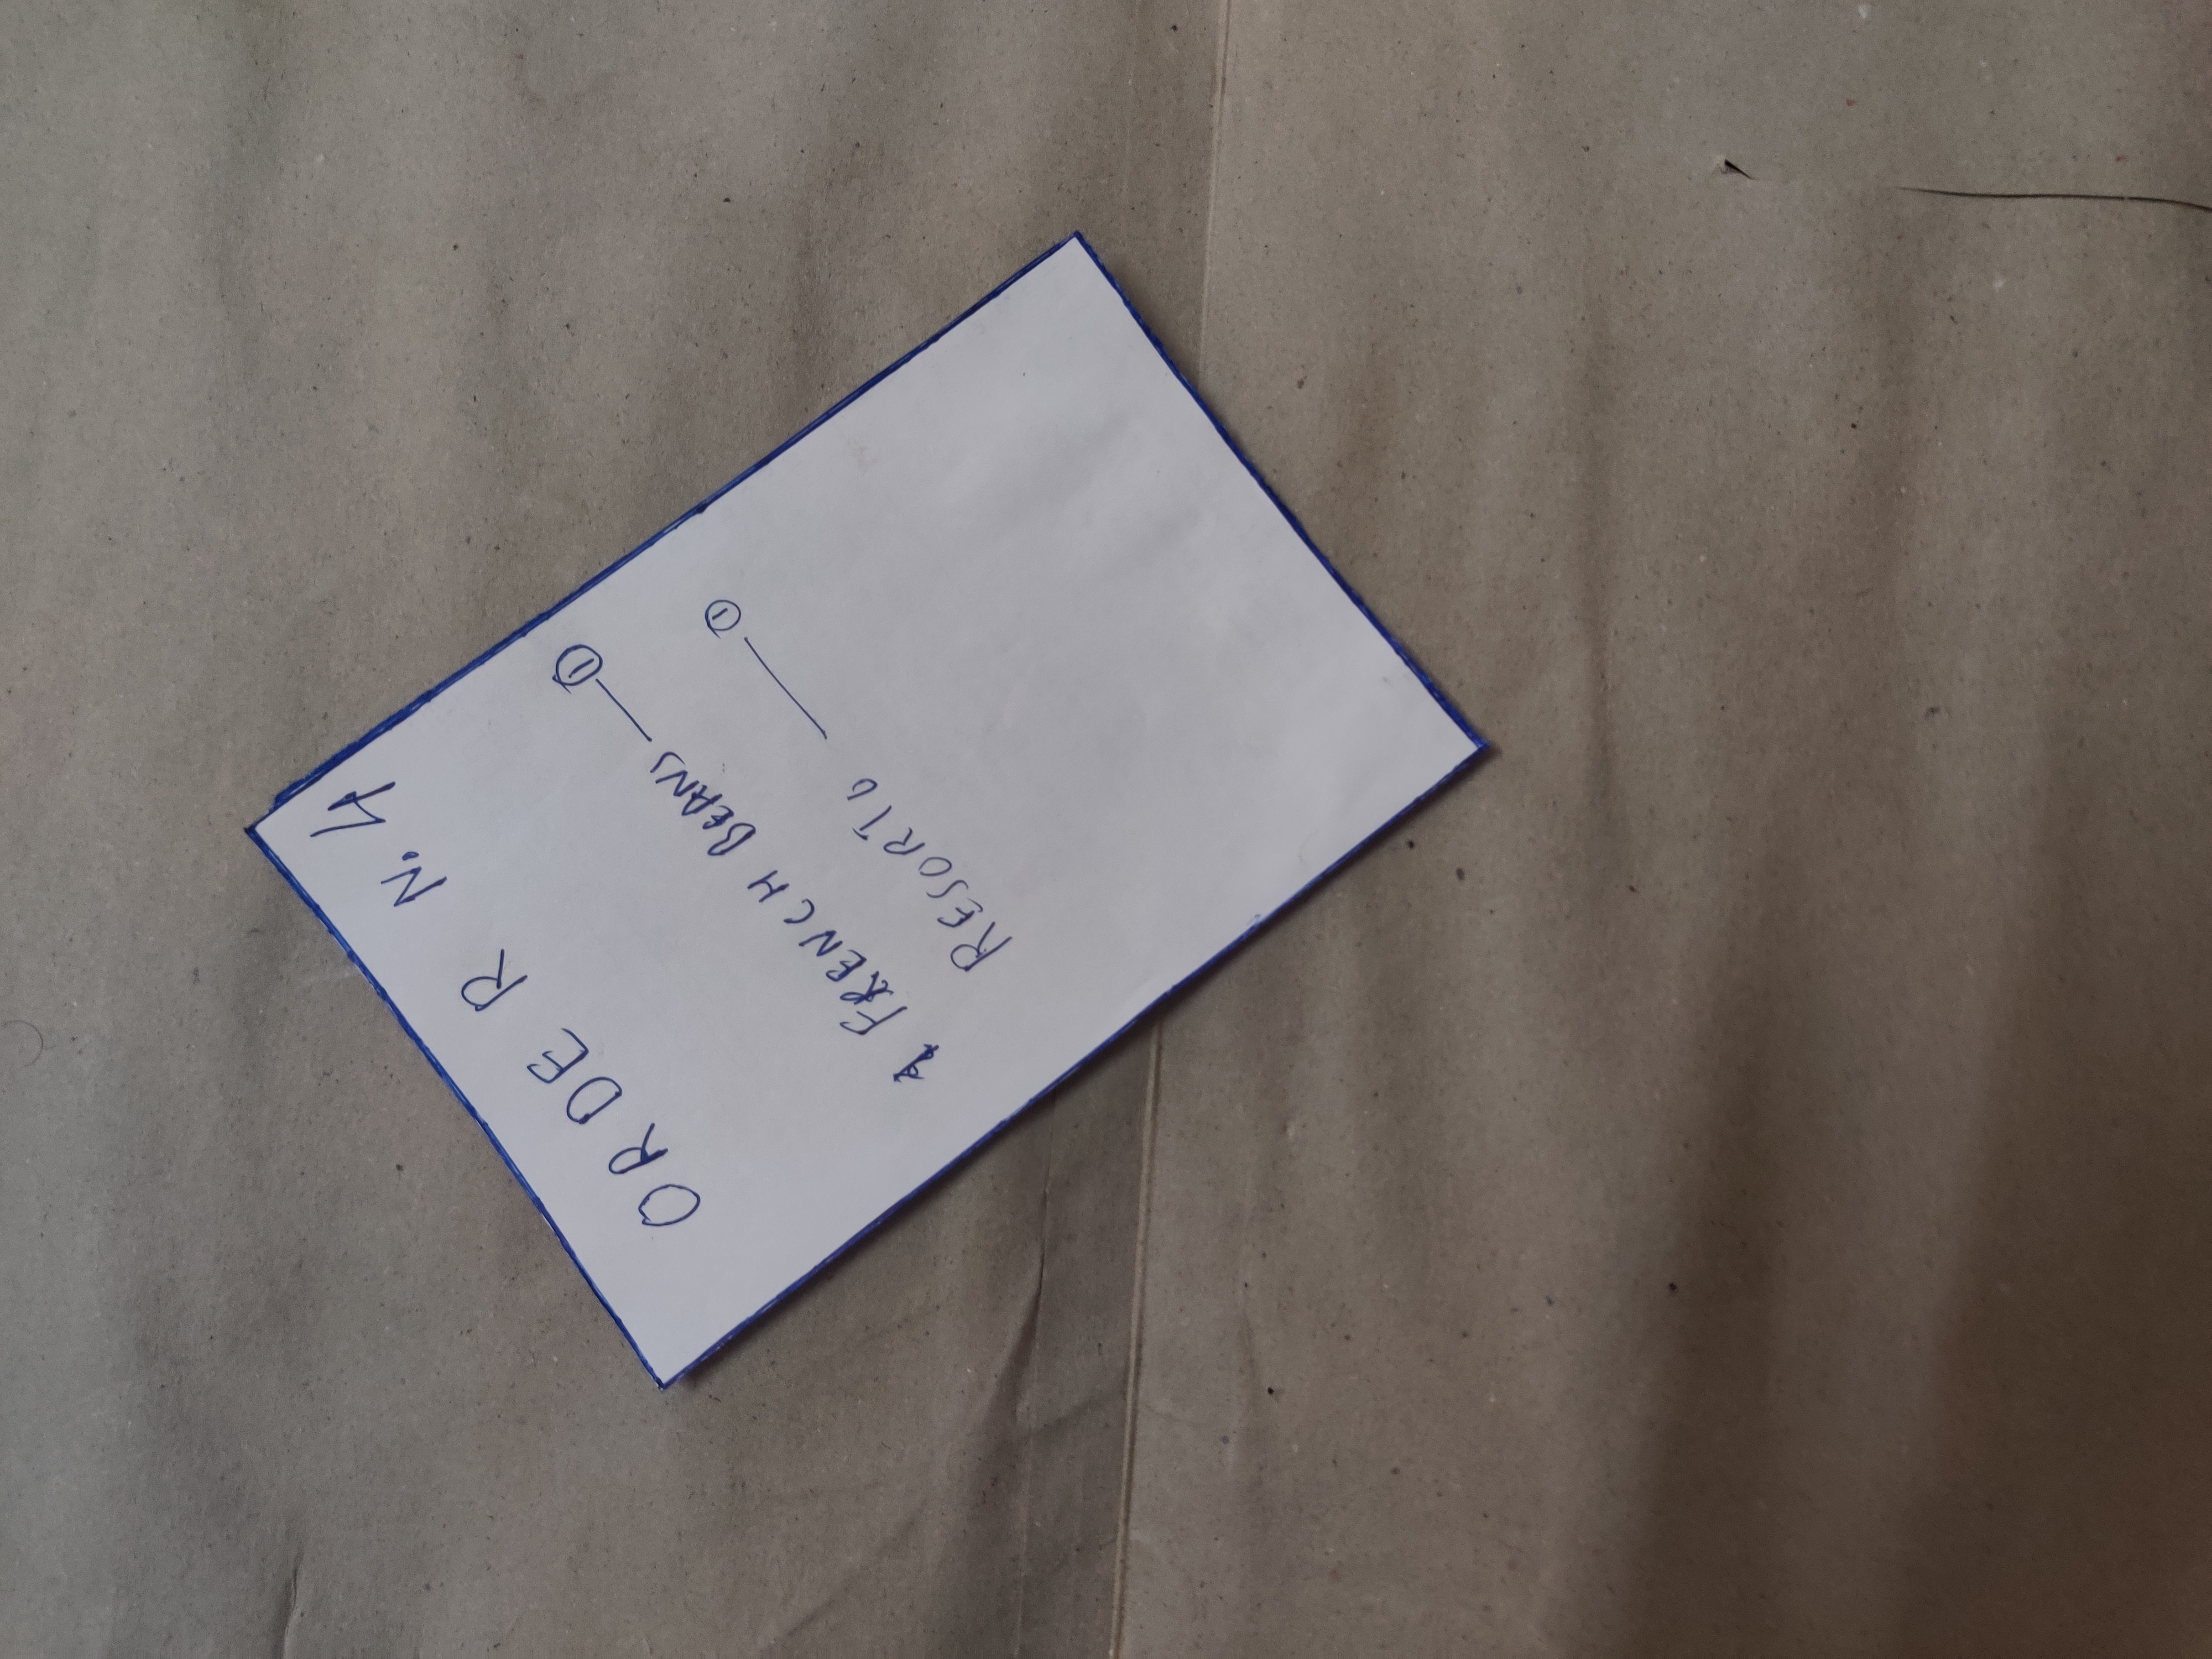 ORDER N. 4
FRENCH BEANS — 1
RESORTO — 1